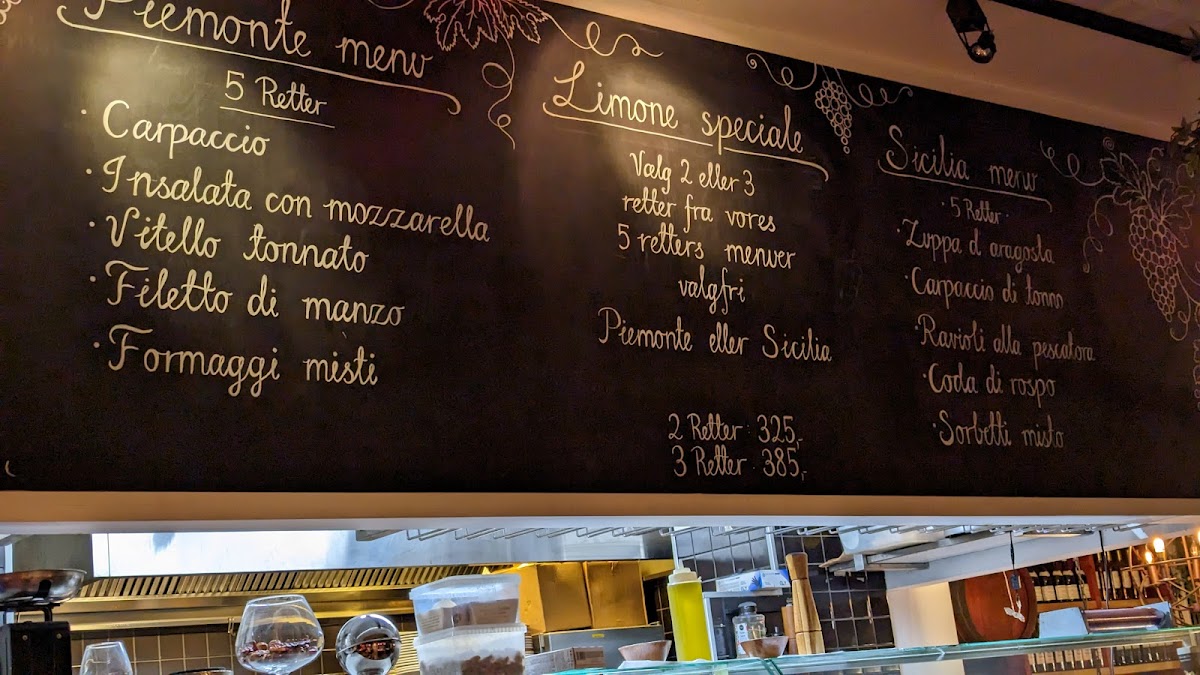 Piemonte menu
5 Retter
· Carpaccio
· Insalata con mozzarella
· Vitello tonnato
· Filetto di manzo
· Formaggi misti
Limone speciale
Vælg 2 eller 3
retter fra vores
5 retters menuer
valgfri
Piemonte eller Sicilia
2 Retter 325,-
3 Retter 385,-
Sicilia menu
· 5 Retter ·
· Zuppa d aragosta
· Carpaccio di tonno
· Ravioli alla pescatora
· Coda di rospo
· Sorbetti misto